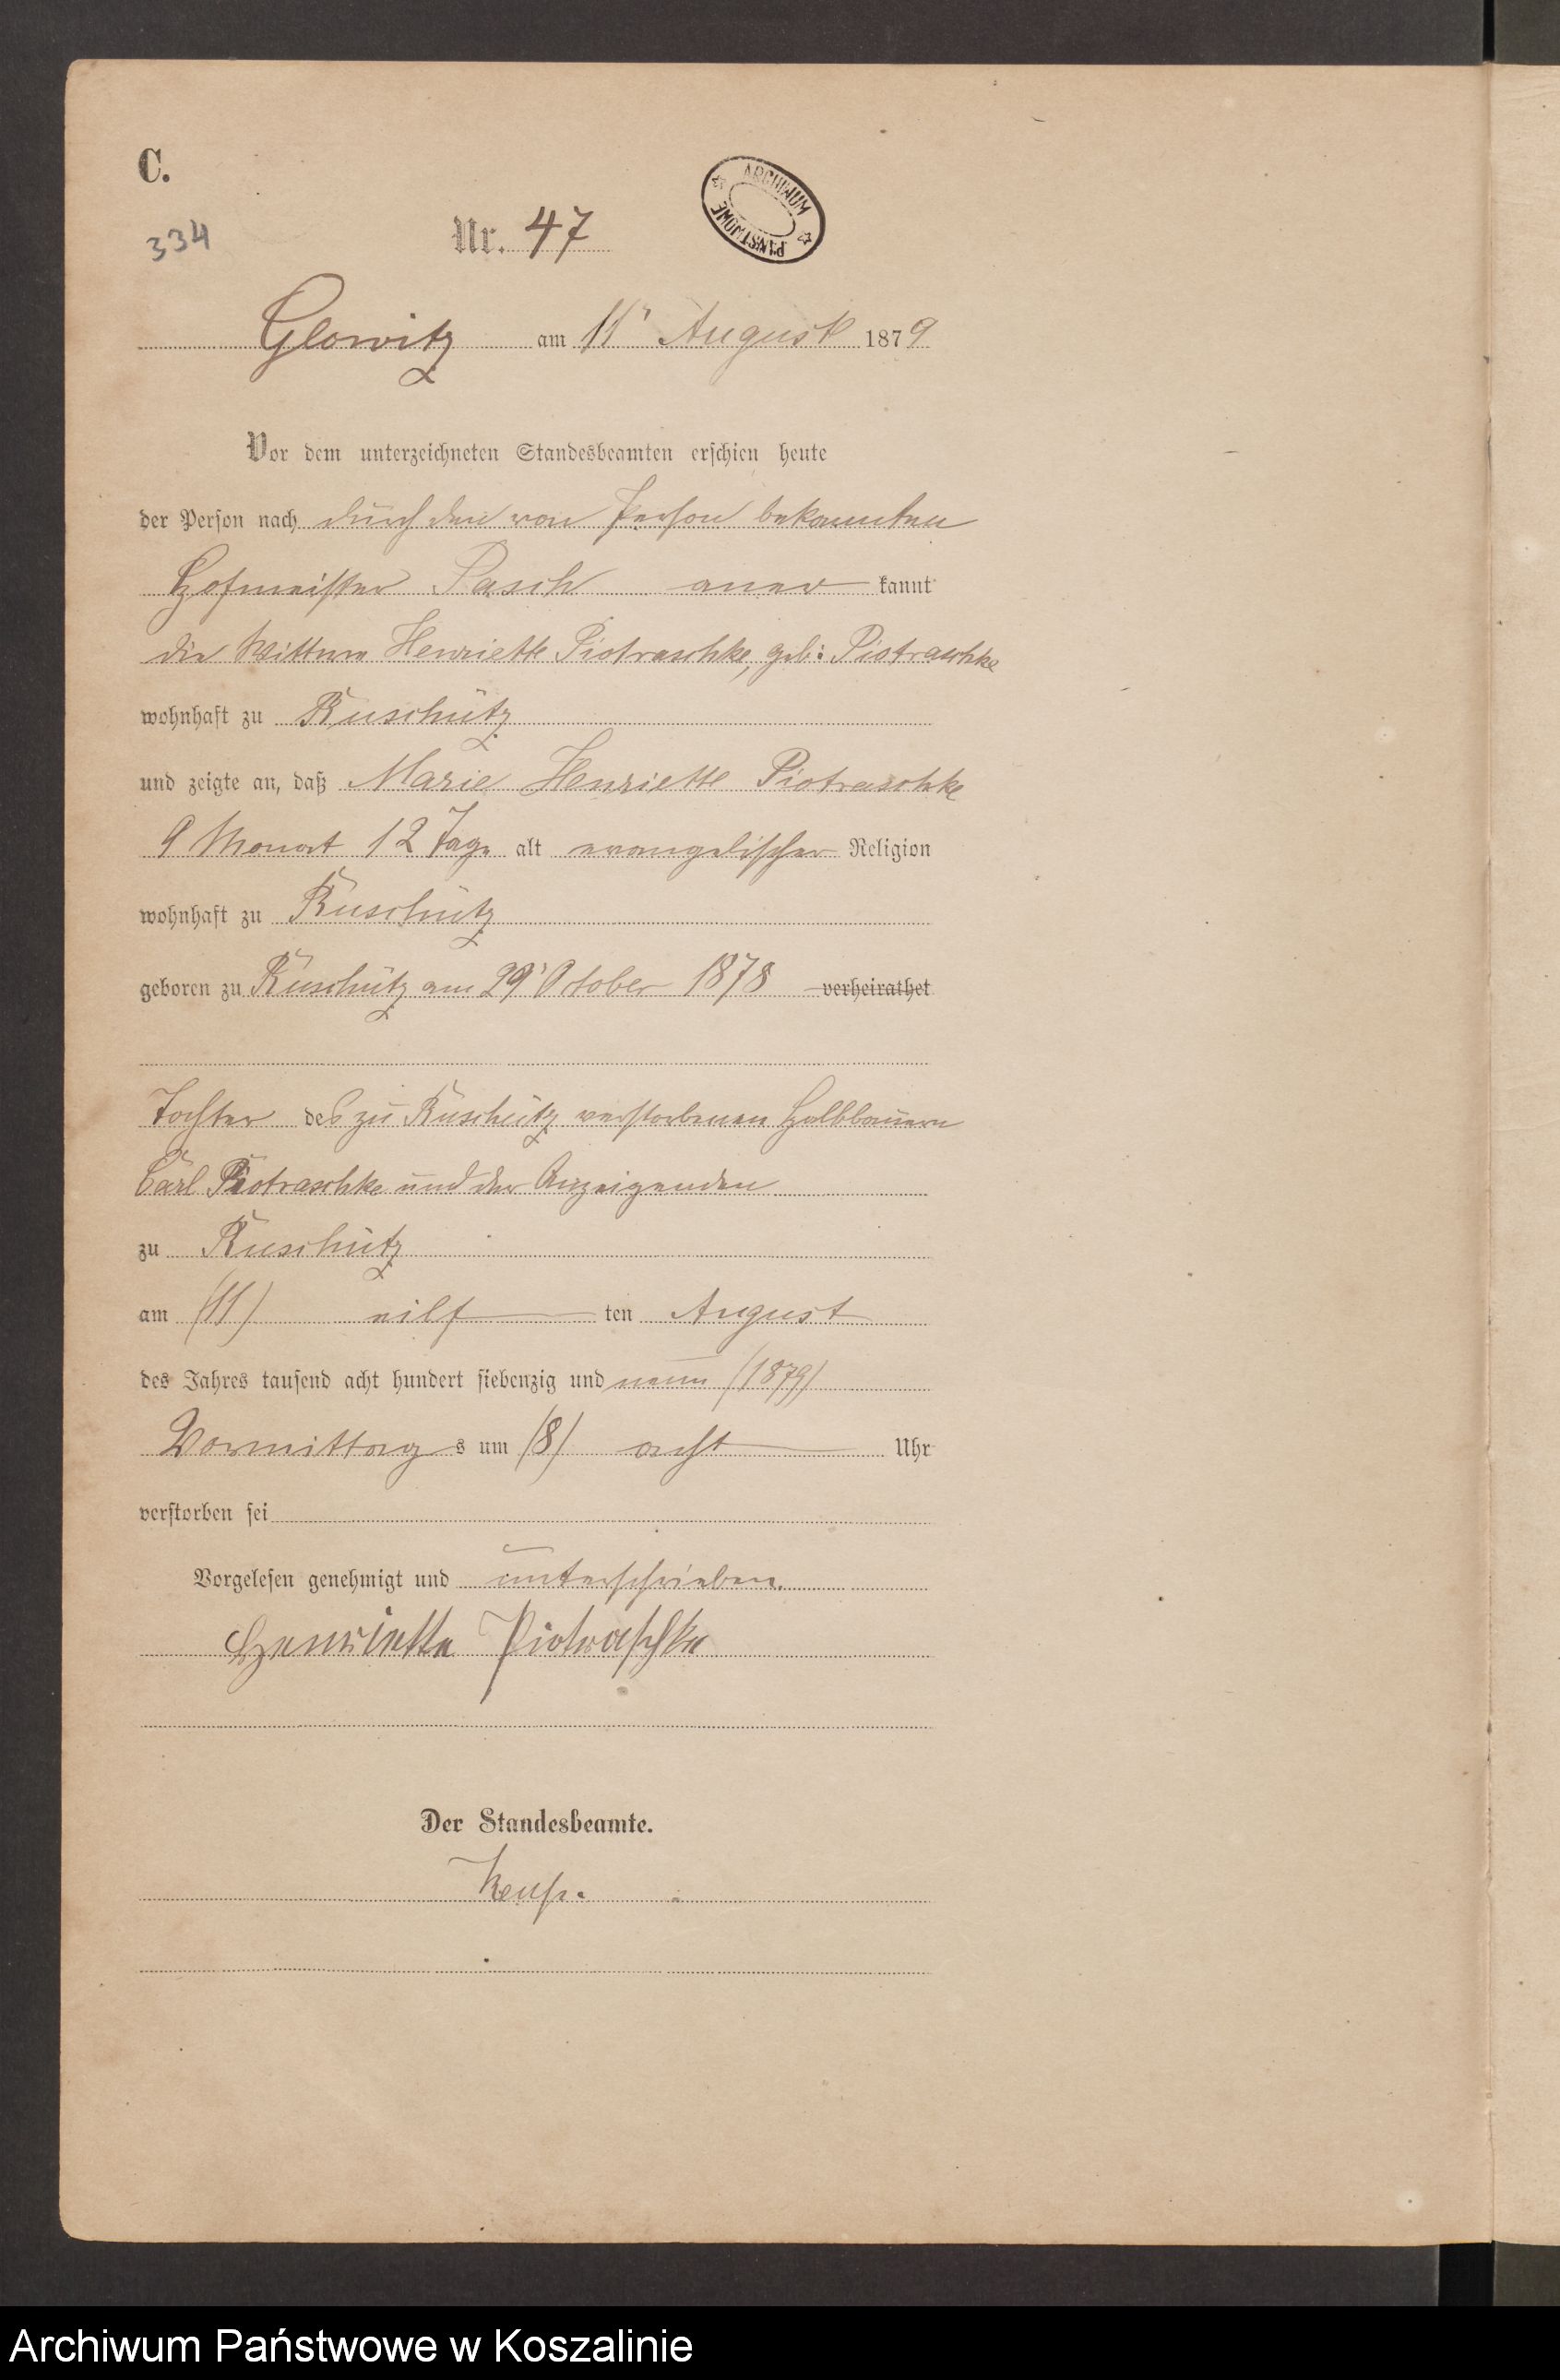 C.
334
Nr. 47
ARCHIWUM PAŃSTWOWE
Glowitz am 11' August 1879
Vor dem unterzeichneten Standesbeamten erschien heute
der Person nach durch den von Person bekannten
Hofmeister Pasch aner kannt
die Wittwe Henriette Piotraschke, geb: Piotraschke
wohnhaft zu Ruschütz
und zeigte an, daß Marie Henriette Piotraschke
9 Monat 12 Tage alt evangelischer Religion
wohnhaft zu Ruschütz
geboren zu Ruschütz am 29' October 1878 verheirathet
Tochter des zu Ruschütz verstorbenen Halbbauern
Carl Piotraschke und der Anzeigenden
zu Ruschütz
am (11) eilf ten August
des Jahres tausend acht hundert siebenzig und neun (1879)
Vormittag s um (8) acht Uhr
verstorben sei
Vorgelesen genehmigt und unterschrieben.
Henriette Piotraschke
Der Standesbeamte.
Archiwum Państwowe w Koszalinie